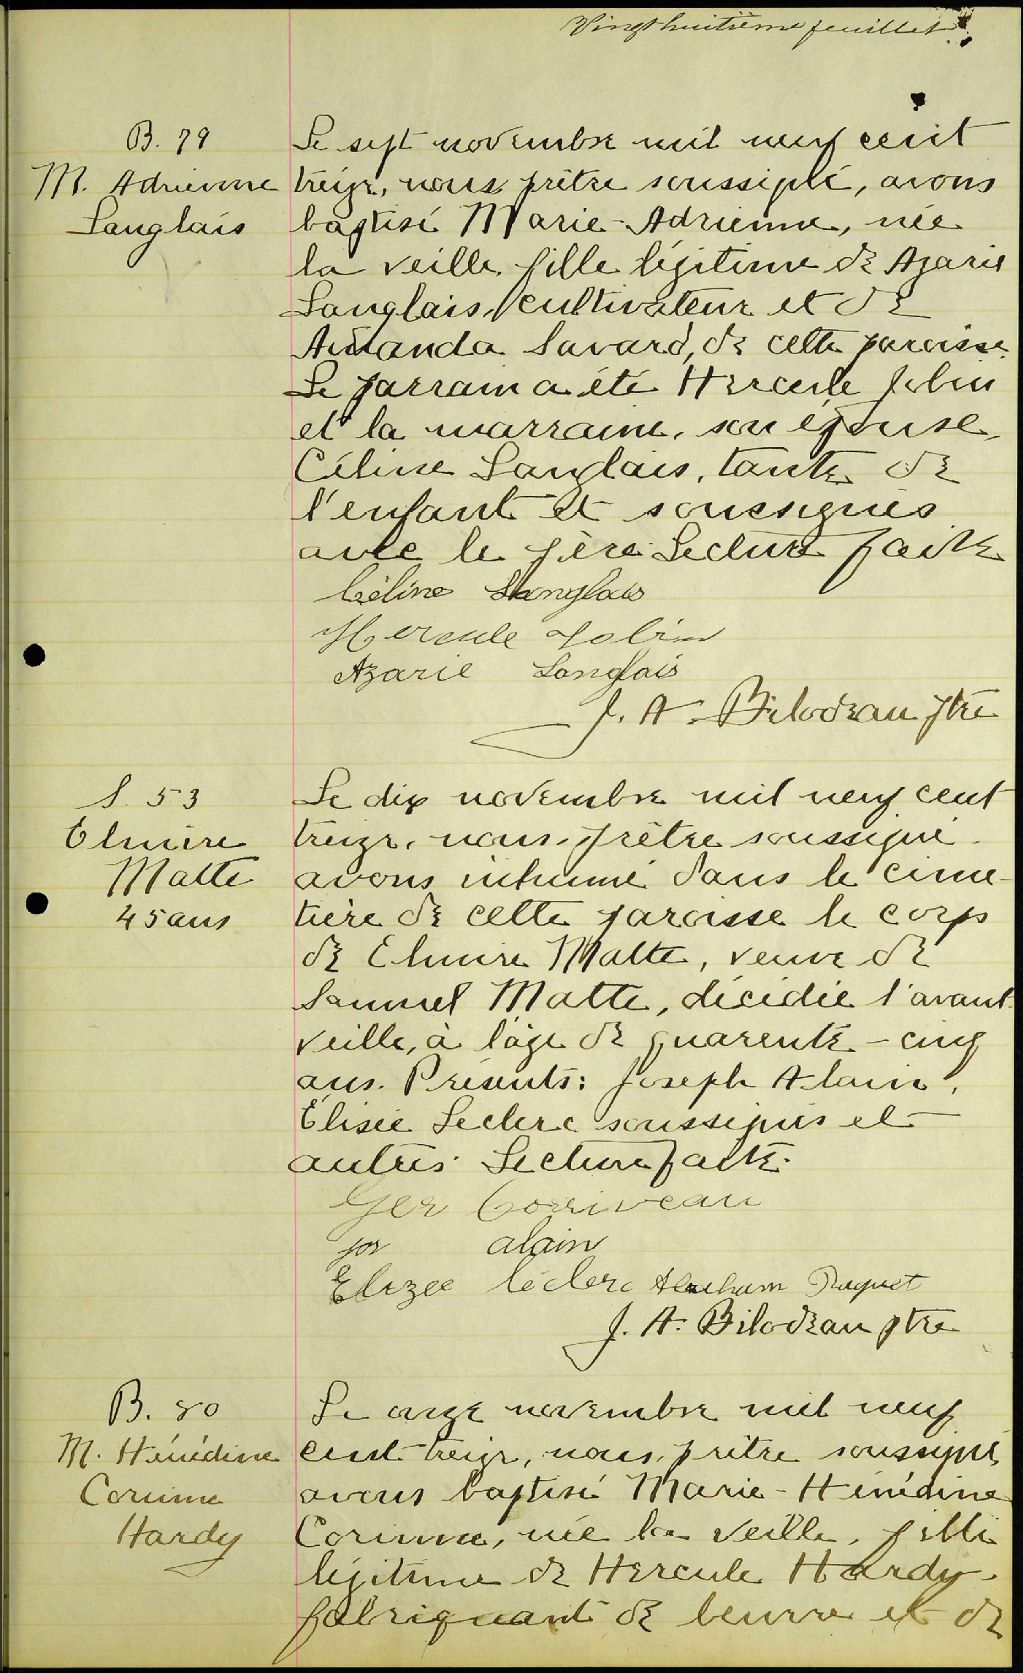 Vingt huitième feuillet
B. 79
M. Adrienne
Langlais
Le sept novembre mil neuf cent
treize, nous, prêtre soussigné, avons
baptisé Marie-Adrienne, née
la veille, fille légitime de Azarie
Langlais, cultivateur et de
Amanda Savard, de cette paroisse.
Le parrain a été Hercule Jobin
et la marraine, son épouse,
Céline Langlais, tante de
l'enfant et soussignés
avec le père. Lecture faite
Céline Langlais
Hercule Jobin
Azarie Langlais
J. A. Bilodeau ptre
S. 53
Elmire
Matte
45 ans
Le dix novembre mil neuf cent
treize, nous, prêtre soussigné
avons inhumé dans le cime-
tière de cette paroisse le corps
de Elmire Matte, veuve de
Samuel Matte, décédée l'avant-
veille, à l'âge de quarente-cinq
ans. Présents: Joseph Alain,
Élisée Leclerc soussignés et
autres. Lecture faite.
Ger Corriveau
jos alain
Elizee leclerc Abraham Paquet
J. A. Bilodeau ptre
B. 80
M. Hénédine
Corinne
Hardy
Le onze novembre mil neuf
cent treize, nous, prêtre soussigné,
avons baptisé Marie-Hénédine
Corinne, née la veille, fille
légitime de Hercule Hardy,
fabriquant de beurre et de